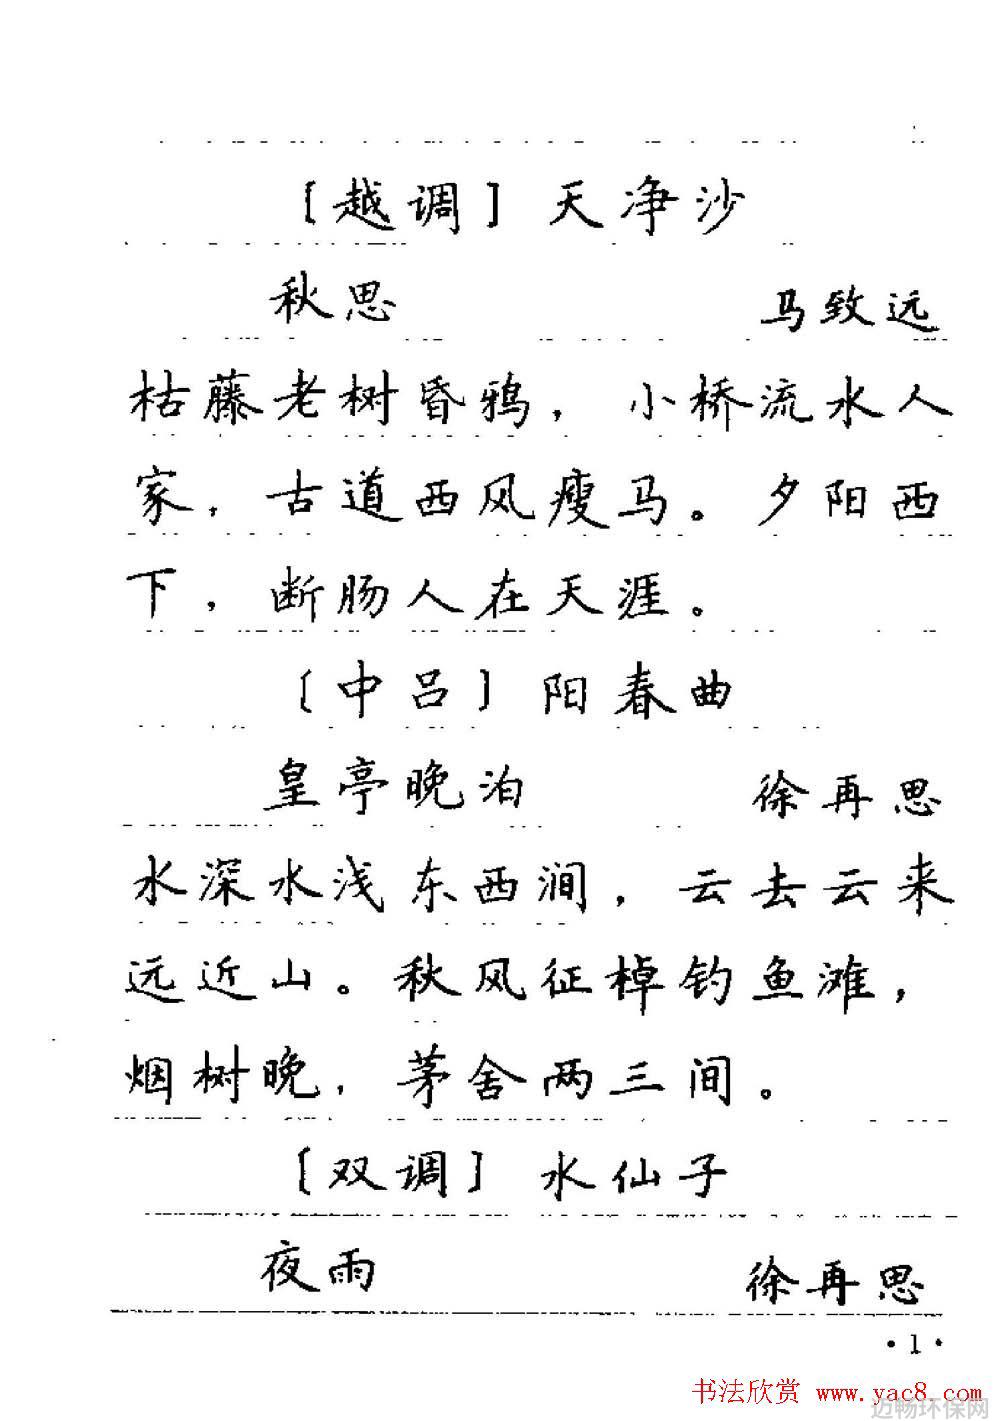 ［越调］天净沙
秋思 马致远
枯藤老树昏鸦，小桥流水人
家，古道西风瘦马。夕阳西
下，断肠人在天涯。
［中吕］阳春曲
皇亭晚泊 徐再思
水深水浅东西涧，云去云来
远近山。秋风征棹钓鱼滩，
烟树晚，茅舍两三间。
［双调］水仙子
夜雨 徐再思
·1·
书法欣赏 www.yac8.com
迈畅环保网